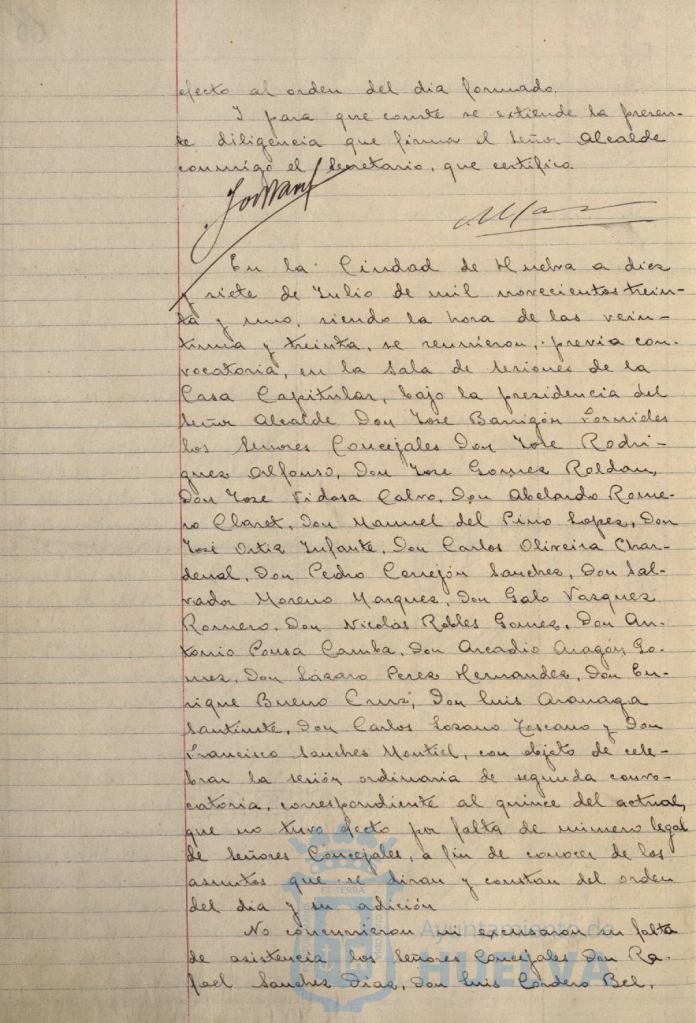 efecto al orden del dia formado.
I para que conste se extiende la presen-
te diligencia que firma el Señor Alcalde
conmigo el Secretario, que certifico.
En la Ciudad de Huelva a diez
y siete de Julio de mil novecientos trein-
ta y uno, siendo la hora de las vein-
tiuna y treinta, se reunieron, previa con-
vocatoria, en la Sala de Sesiones de la
Casa Capitular, bajo la presidencia del
Señor Alcalde Don José Barrigón Fornides
los Señores Concejales Don José Rodri-
guez Alfonso, Don José Gomez Roldan,
Don José Vidosa Calvo, Don Abelardo Rome-
ro Claret, Don Manuel del Pino Lopez, Don
José Ortiz Infante, Don Carlos Oliveira Char-
denal, Don Pedro Cerrejón Sanchez, Don Sal-
vador Moreno Marquez, Don Galo Vazquez
Romero, Don Nicolás Robles Gomez, Don An-
tonio Pousa Camba, Don Arcadio Aragón Go-
mez, Don Lázaro Perez Hernandez, Don En-
rique Bueno Cruz, Don Luis Aranaga
Don Carlos Lozano Toscano y Don
Francisco Sanchez Montiel, con objeto de cele-
brar la sesión ordinaria de segunda convo-
catoria, correspondiente al quince del actual,
que no tuvo efecto por falta de número legal
de Señores Concejales, a fin de conocer de los
asuntos que se diran y constan del orden
del dia y su adición
No concurrieron ni excusaron su falta
de asistencia los Señores Concejales Don Ra-
fael Sanchez Diaz, Don Luis Cordero Bel,
EL TERRA
Ayuntamiento de
HUELVA